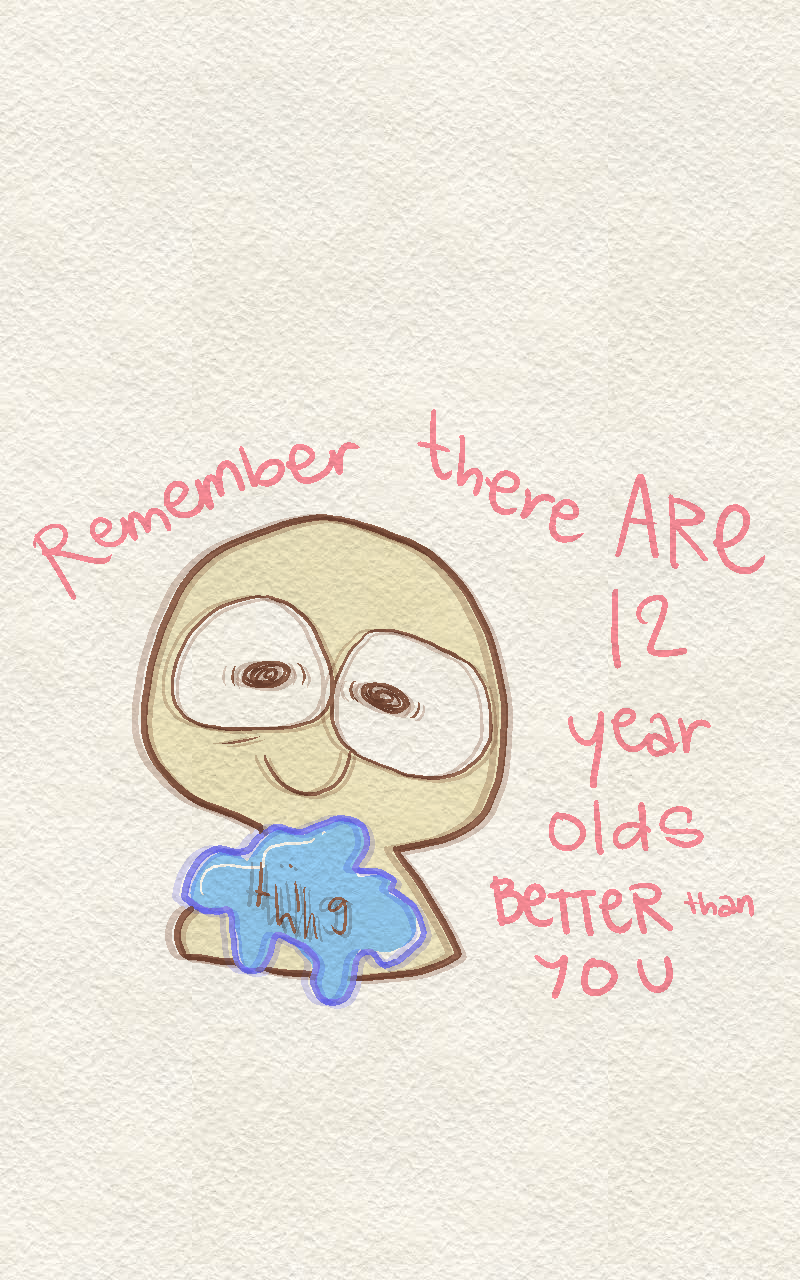 Remember there ARe
12
year
olds
BeTTeR than
YOU